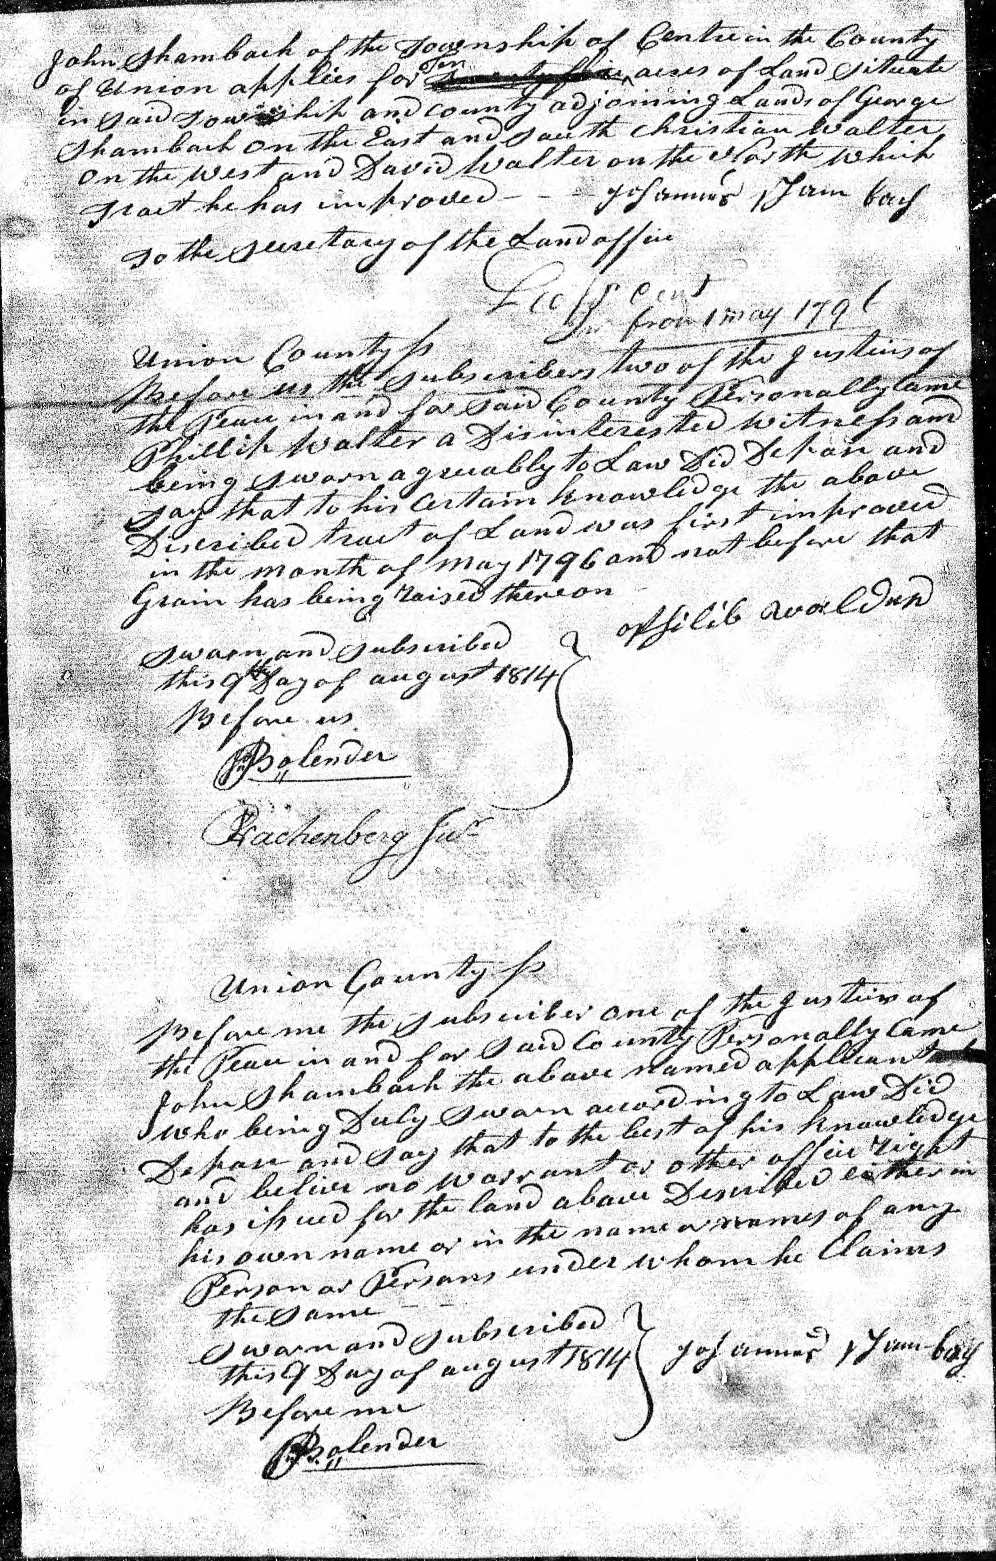 John Shambach of the Township of Centre in the County
of Union applies for ten acres of Land situate
in said Township and county adjoining Lands of George
Shambach on the East and south Christian Walter
on the West and David Walter on the North which
Tract he has improved - - Johannes Schambach
To the secretary of the Land office
from 1 may 1796
Union County ss
Before us the subscribers two of the Justices of
the Peace in and for said County Personally Came
Phillip Walter a Disinterested witness and
being sworn agreeably to Law Did Depose and
say that to his certain knowledge the above
Discribed tract of Land was first improved
in the month of May 1796 and not before that
Grain has being raised thereon
Philib
sworn and subscribed
this 9th Day of august 1814
Before us
Bolender
Rachenberg Jur
Union County ss
Before me the subscriber one of the Justices of
the Peace in and for said County Personally Came
John Shambach the above named applicant
who being Duly sworn according to Law Did
Depose and say that to the best of his knowledge
and belive no warrant or other office right
has issued for the land above Described either in
his own name or in the name or names of any
Person or Persons under whom he Claims
the same - -
sworn and subscribed
this 9 Day of august 1814 Johannes Schambach
Before me
Bolender